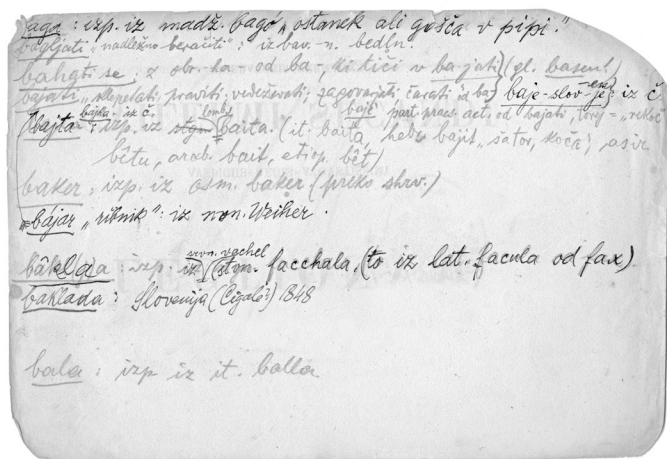 bago : izp. iz madž. bagó „ostanek ali gošča v pipi."
bagljati „nadležno beračiti": iz bav.-n.
bahati se : z obr. -ha- od ba-, ki tiči v ba-jati (gl. basen!)
bajati „klepetati, praviti, vedeževati, zagovarjati, čarati id. baje-slov-je: iz č
bajka: iz č. baje part. praes. act. od bajati, torej = „rekoč
bajta : izp. iz lomb. baita. (it. baita, hebr. bajit „šator, koča", asir.
bêtu, arab. bait, etiop. bêt)
baker : izp. iz osm. baker (preko shrv.)
„bájar „ribnik": iz nvn. Weiher.
srvn. vachel
bâkla : izp. iz (stvn. facchala, (to iz lat. facula od fax)
baklada : Slovenija (Cigalé?) 1848
bala : izp iz it. balla